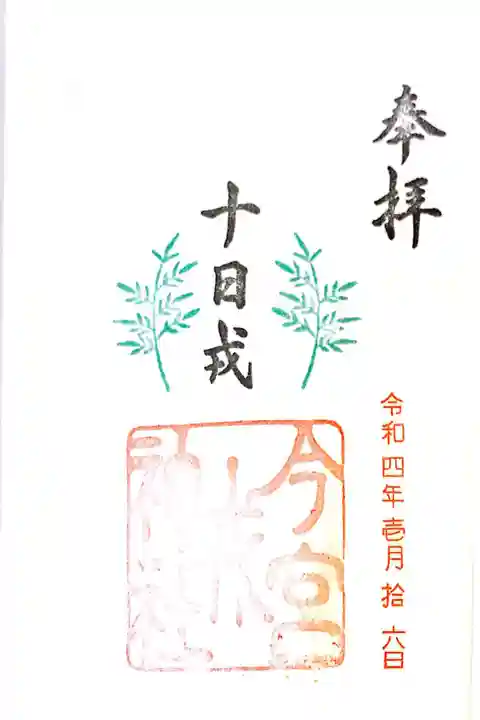 奉拝
令和四年壱月拾六日
十日戎
今宮
戎
神社